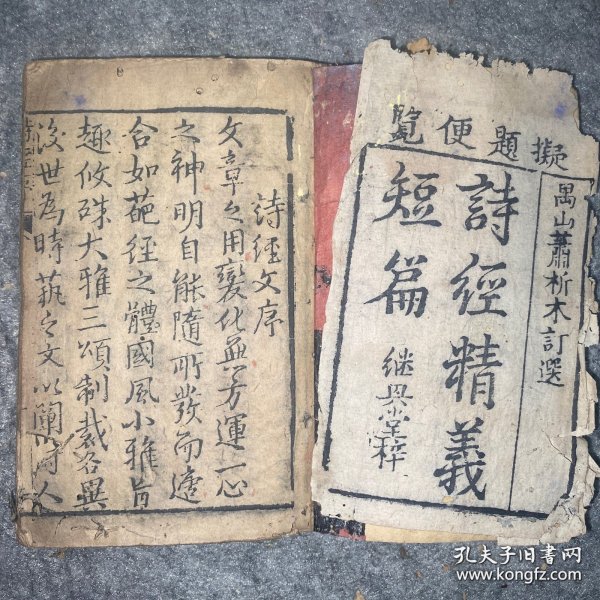 擬題便覽
禺山蕭析木訂選
詩經精義
短篇
继興堂梓
詩經文序
文章之用變化無方運一心
之神明自能隨所發而適
合如葩經之體國風小雅旨
趣攸殊大雅三頌制裁各異
後世為時萟之文以闡詩人
孔夫子旧书网
www.kongfz.com